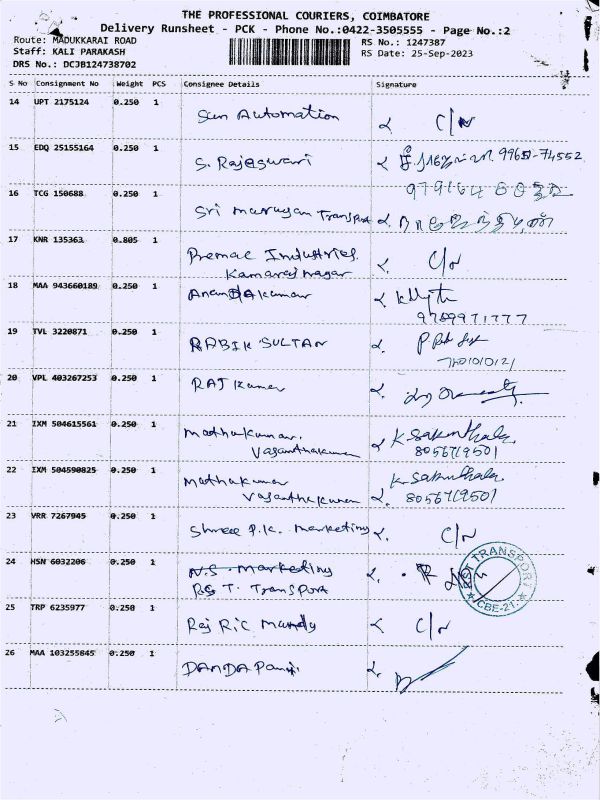 THE PROFESSIONAL COURIERS, COIMBATORE
Delivery Runsheet - PCK - Phone No.:0422-3505555 - Page No.:2
Route: MADUKKARAI ROAD RS No.: 1247387
Staff: KALI PARAKASH RS Date: 25-Sep-2023
DRS No.: DCJB124738702
S No Consignment No Weight PCS Consignee Details Signature
14 UPT 2175124 0.250 1 Sun Automation C/N
15 EDQ 25155164 0.250 1 S. Rajeswari
16 TCG 150688 0.250 1 Sri Murugan Transport
17 KNR 135363 0.805 1 Premac Industries. C/N
Kamaraj nagar
18 MAA 943660189 0.250 1 Anandakumar
9789971777
19 TVL 3220871 0.250 1 RABIK SULTAN
20 VPL 403267253 0.250 1 RAJ Kumar
21 IXM 504615561 0.250 1 Mathukumar. K Sakunthala
Vasanthakumar 8056719501
22 IXM 504590825 0.250 1 Mathukumar K. Sakunthala
Vasanthakumar 8056719501
23 VRR 7267945 0.250 1 Shree P.K. Marketing C/N
24 HSN 6032206 0.250 1 N.S. Marketing
RST Transport
RST TRANSPORT
CBE-21
25 TRP 6235977 0.250 1 Raj Ric Mundy C/N
26 MAA 103255845 0.250 1 DANDA Pani